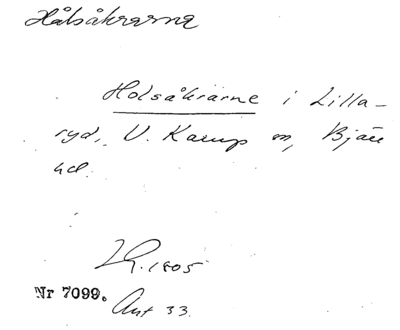 Hålsåkrarna
Holsåkrarne i Lilla-
ryd, V. Karup sn, Bjäre
hd.
LR. 1805
Nr 7099. Akt 33.